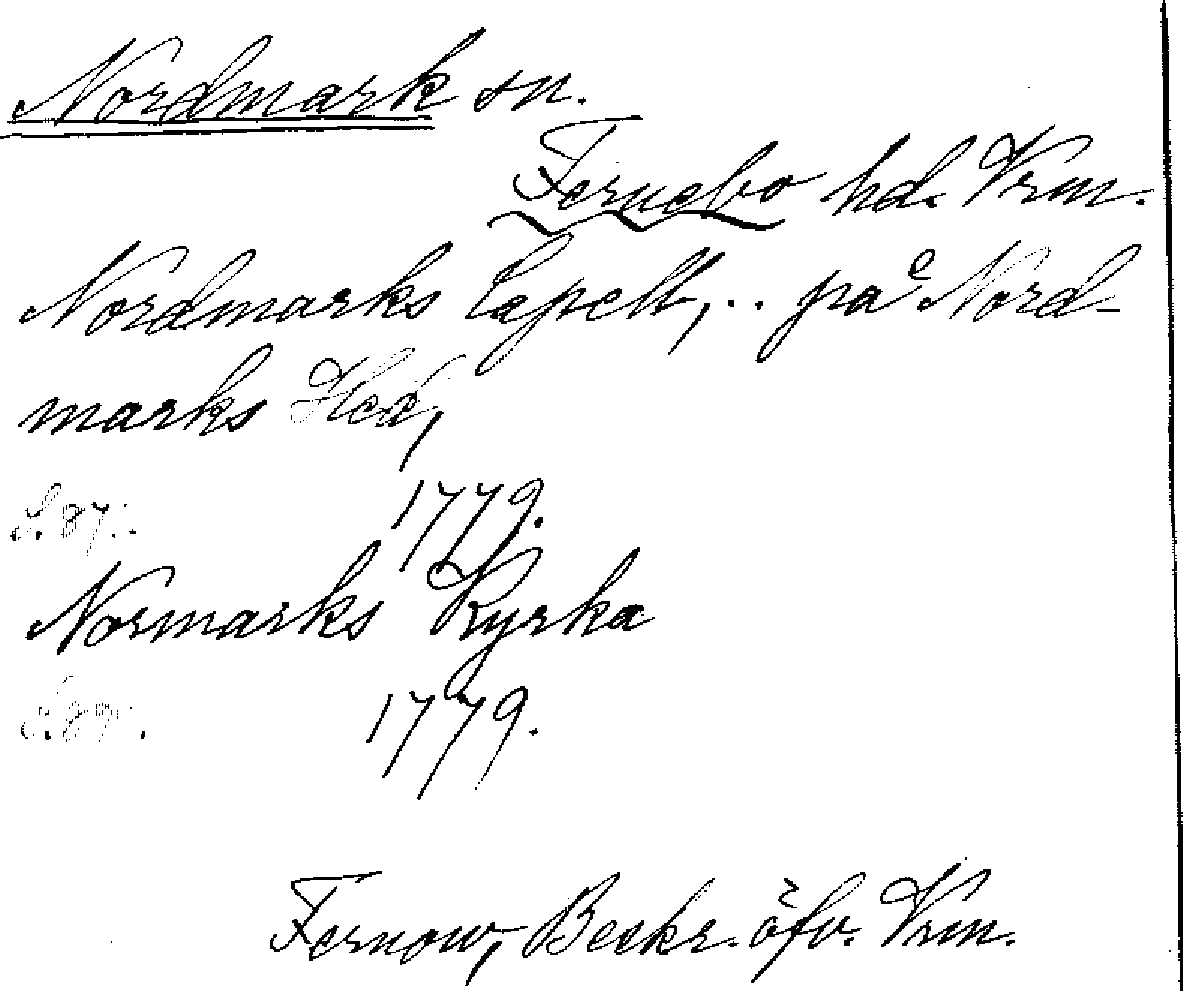 Nordmark sn.
Fernebo hd. Vrm.
Nordmarks Capell, .. på Nord-
marks Hed,
S. 87. 1779.
Normarks Kyrka
1779.
Fernow, Beskr. öfv. Vrm.